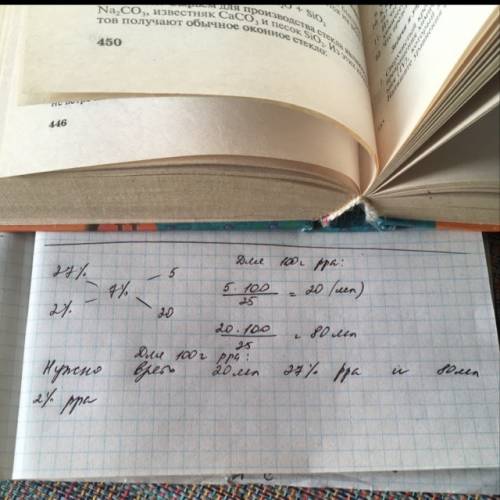 O + SiO₂
для производства стекла
Na₂CO₃, известняк CaCO₃ и песок SiO₂. Из
тов получают обычное оконное стекло:
450
446
27% 5
7%
2% 20
Для 100г рра:
5·100/25 = 20 (мл)
20·100/25 = 80мл
Для 100г рра:
Нужно взять 20мл 27% рра и 80мл
2% рра